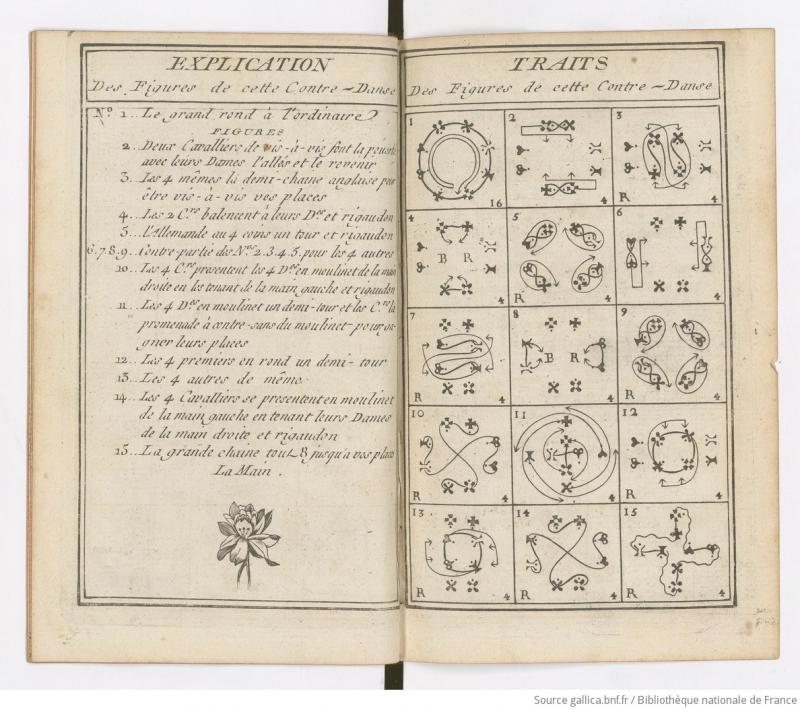 EXPLICATION
Des Figures de cette Contre-Danse
Nº. 1.. Le grand rond à l'ordinaire
FIGURES
2.. Deux Cavalliers de vis-à-vis font la
avec leurs Dames l'allés et le revenir
3.. Les 4 mêmes la demi-chaine anglaise pour
être vis-à-vis vos places
4.. Les 2 C.rs balencent à leurs D.es et rigaudon
5.. l'Allemande au 4 coins un tour et rigaudon
6.7.8.9.. Contre-partie des N.os 2.3.4.5. pour les 4 autres
10.. Les 4 C.rs presentent les 4 D.es en moulinet de la main
droite en les tenant de la main gauche et rigaudon
11.. Les 4 D.es en moulinet un demi-tour et les C.rs la
promenade à contre-sans du moulinet pour ga-
gner leurs places
12... Les 4 premiers en rond un demi-tour
13.. Les 4 autres de même
14.. Les 4 Cavalliers se presentent en moulinet
de la main gauche en tenant leurs Dames
de la main droite et rigaudon
15.. La grande chaine tout 8 jusqu'a vos places
La Main.
TRAITS
Des Figures de cette Contre-Danse
1 16
2 4
3 R 4
4 B R 4
5 R 4
6 4
7 R 4
8 B R 4
9 R 4
10 R 4
11 4
12 R 4
13 R 4
14 R 4
15 R 4
Source gallica.bnf.fr / Bibliothèque nationale de France